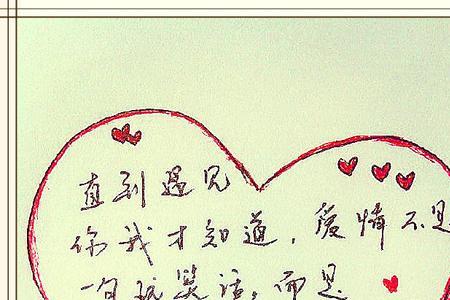 直到遇见
你我才知道，爱情不是
一句玩笑话，而是